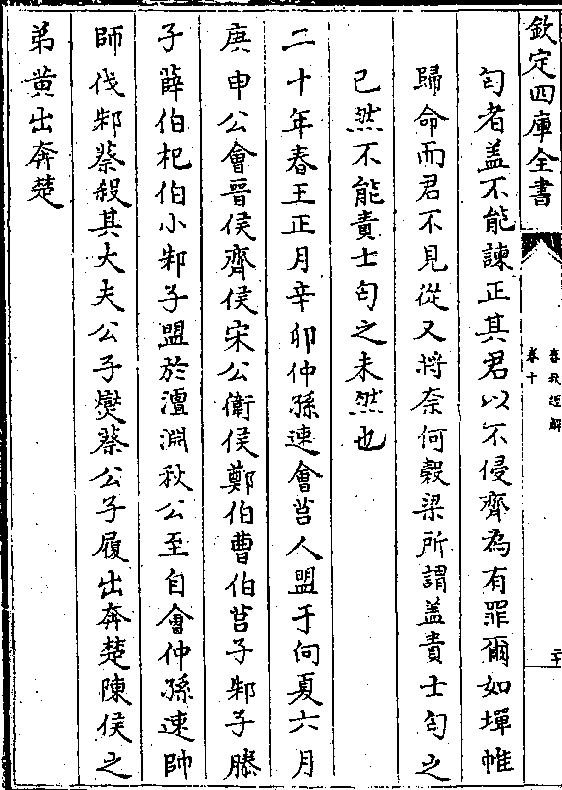 欽定四庫全書
春秋經解
卷十
二十
匄者盖不能諫正其君以不侵齊為有罪爾如墠帷
歸命而君不見從又將奈何穀梁所謂盖責士匄之
已然不能責士匄之未然也
二十年春王正月辛卯仲孫速會莒人盟于向夏六月
庚申公會晉侯齊侯宋公衛侯鄭伯曹伯莒子邾子滕
子薛伯杞伯小邾子盟於澶淵秋公至自會仲孫速帥
師伐邾蔡殺其大夫公子爕蔡公子履出奔楚陳侯之
弟黄出奔楚